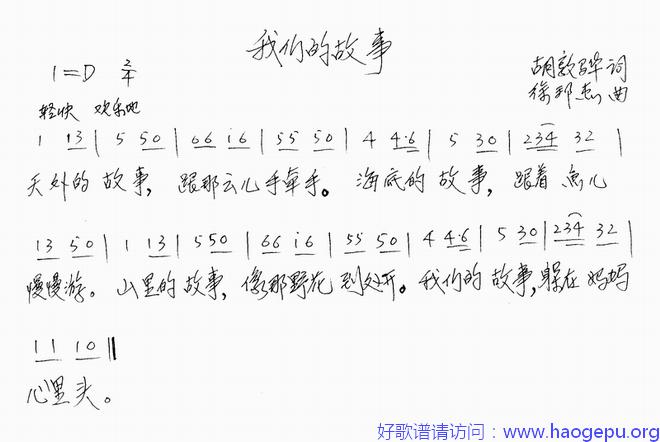 我们的故事
1=D 2/4
胡敦骅 词
徐邦杰 曲
轻快 欢乐地
1 13 | 5 50 | 66 i6 | 55 50 | 4 4·6 | 5 30 | 234 32 |
天外的故事，跟那云儿手牵手。海底的故事，跟着鱼儿
13 50 | 1 13 | 5 50 | 66 i6 | 55 50 | 4 4·6 | 5 30 | 234 32 |
慢慢游。山里的故事，像那野花到处开。我们的故事，躲在妈妈
11 10 ‖
心里头。
好歌谱请访问：www.haogepu.org